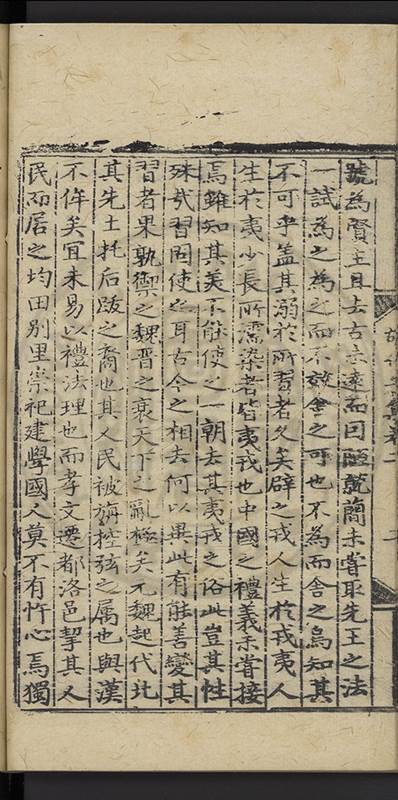 號為賢主且去古未遠而因陋就簡未嘗取先王之法
一試為之為之而不效舍之可也不為而舍之烏知其
不可乎盖其溺於所習者久矣辟之戎人生於戎夷人
生於夷少長所濡染者皆夷戎也中國之禮義未嘗接
焉雖知其美不能使之一朝去其夷戎之俗此豈其性
殊㢤習固使之耳古今之相去何以異此有能善變其
習者果孰禦之魏晋之衰天下之亂極矣元魏起代北
其先土托后跋之裔也其人民被旃控弦之属也與漢
不侔矣冝未易以禮法理也而孝文遷都洛邑挈其人
民而居之均田别里崇祀建學國人莫不有忤心焉獨